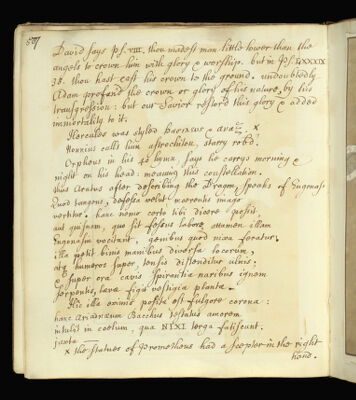 David says ps. VIII. thou madest man little lower than the
angels to crown him with glory & worship. but in Ps. LXXXIX
38. thou hast cast his crown to the ground. undoubtedly
Adam profand the crown or glory of his nature, by his
transgression: but our Savior restord this glory & added
immortality to it.
Hercules was styled &
Nonnius calls him astrochiton, starry robd.
Orpheus in his hymn, says he carrys morning &
night on his head. meaning this constellation.
thus Aratus after describing the Dragon, speaks of Engonasi
Quod tangens, defessa velut maerentis imago
vertitur. hanc nemo certo tibi dicere possit,
aut quisnam, que sit fessus labore, attamen illam
Engonasin vocitant, genibus quod nixa feratur,
illa petit binis manibus diversa locorum,
atq humeros super, tensis distenditur ulnis.
super ora cavis spirantia naribus ignem
serpentis, laeva figit vestigia planta.
Hic illa eximio posita est fulgore corona:
hanc Ariadnaeum Bacchus testatus amorem
intulit in coelum, qua NIXI terga fatiscunt.
juxta
x the statues of Prometheus had a scepter in the right
hand.